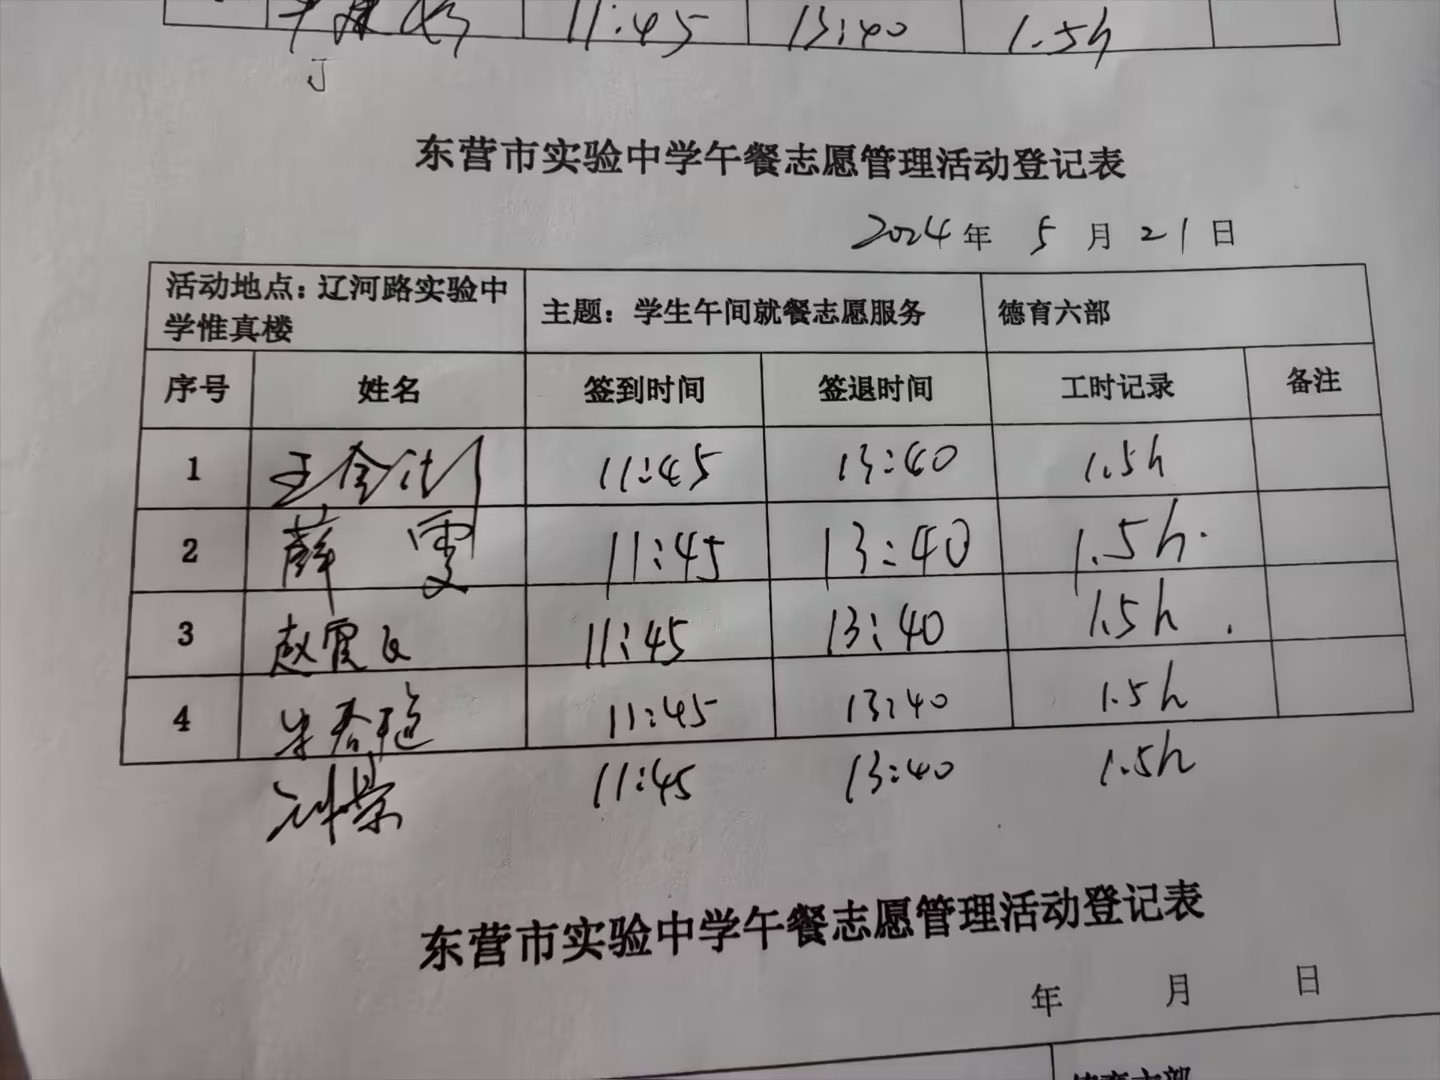 11:45 13:40 1.5h
东营市实验中学午餐志愿管理活动登记表
2024年 5月21日
活动地点：辽河路实验中学惟真楼 主题：学生午间就餐志愿服务 德育六部
序号 姓名 签到时间 签退时间 工时记录 备注
1 11:45 13:40 1.5h
2 薛雯 11:45 13:40 1.5h.
3 赵霞 11:45 13:40 1.5h.
4 11:45 13:40 1.5h
11:45 13:40 1.5h
东营市实验中学午餐志愿管理活动登记表
年 月 日
德育六部